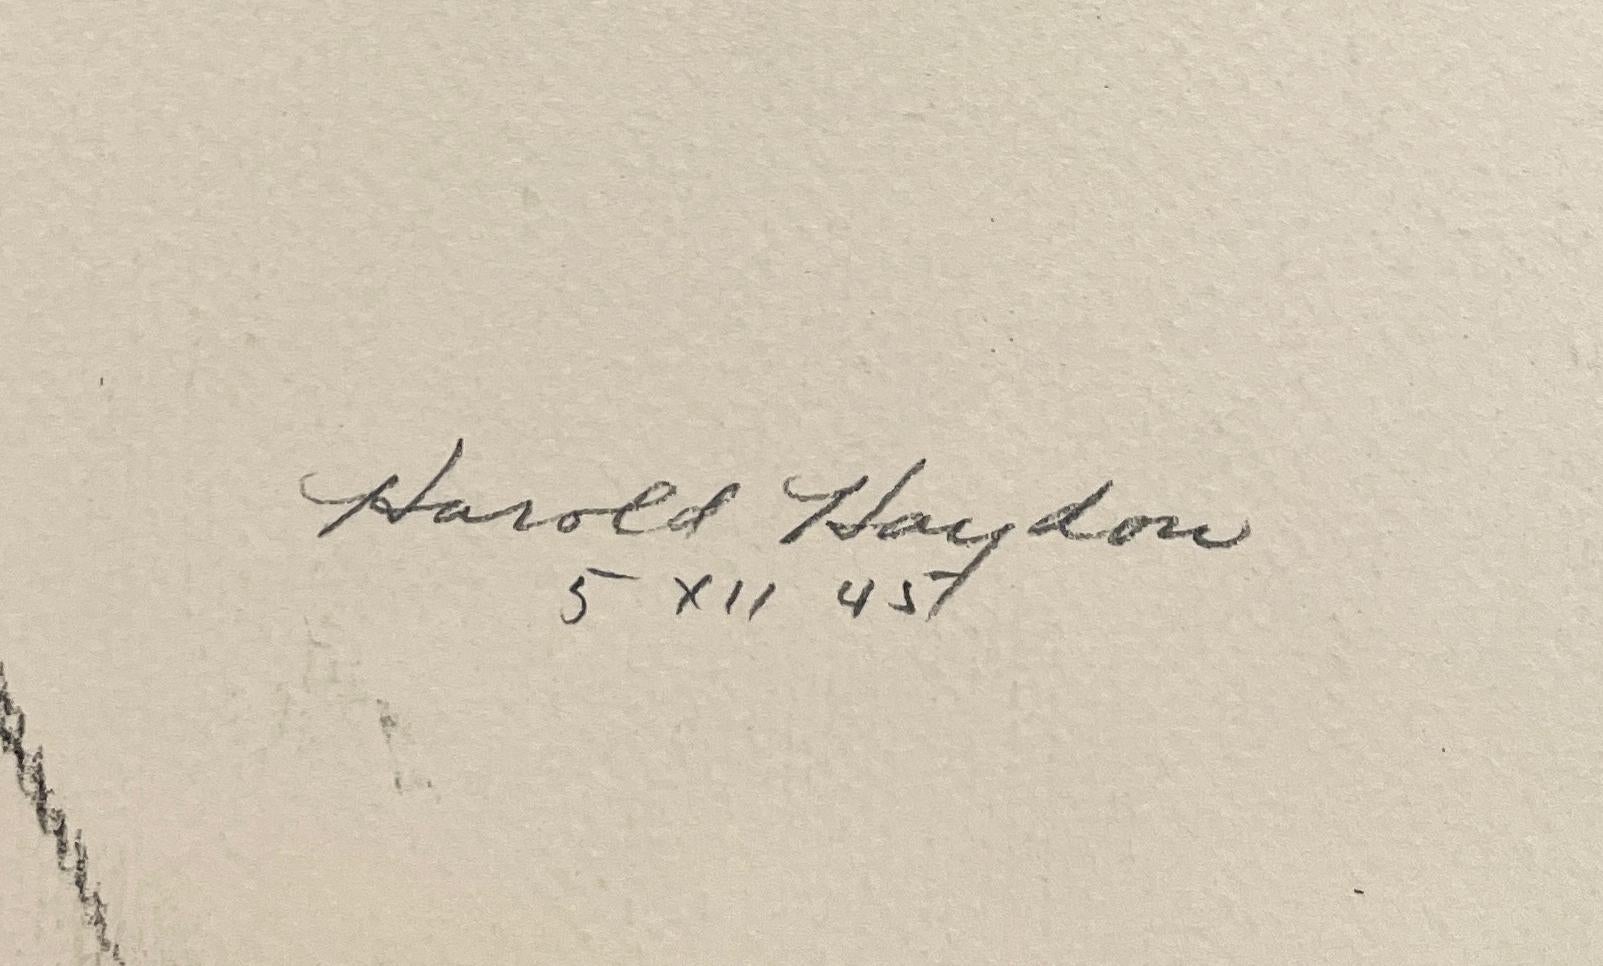 Harold Haydon
5 XII 45